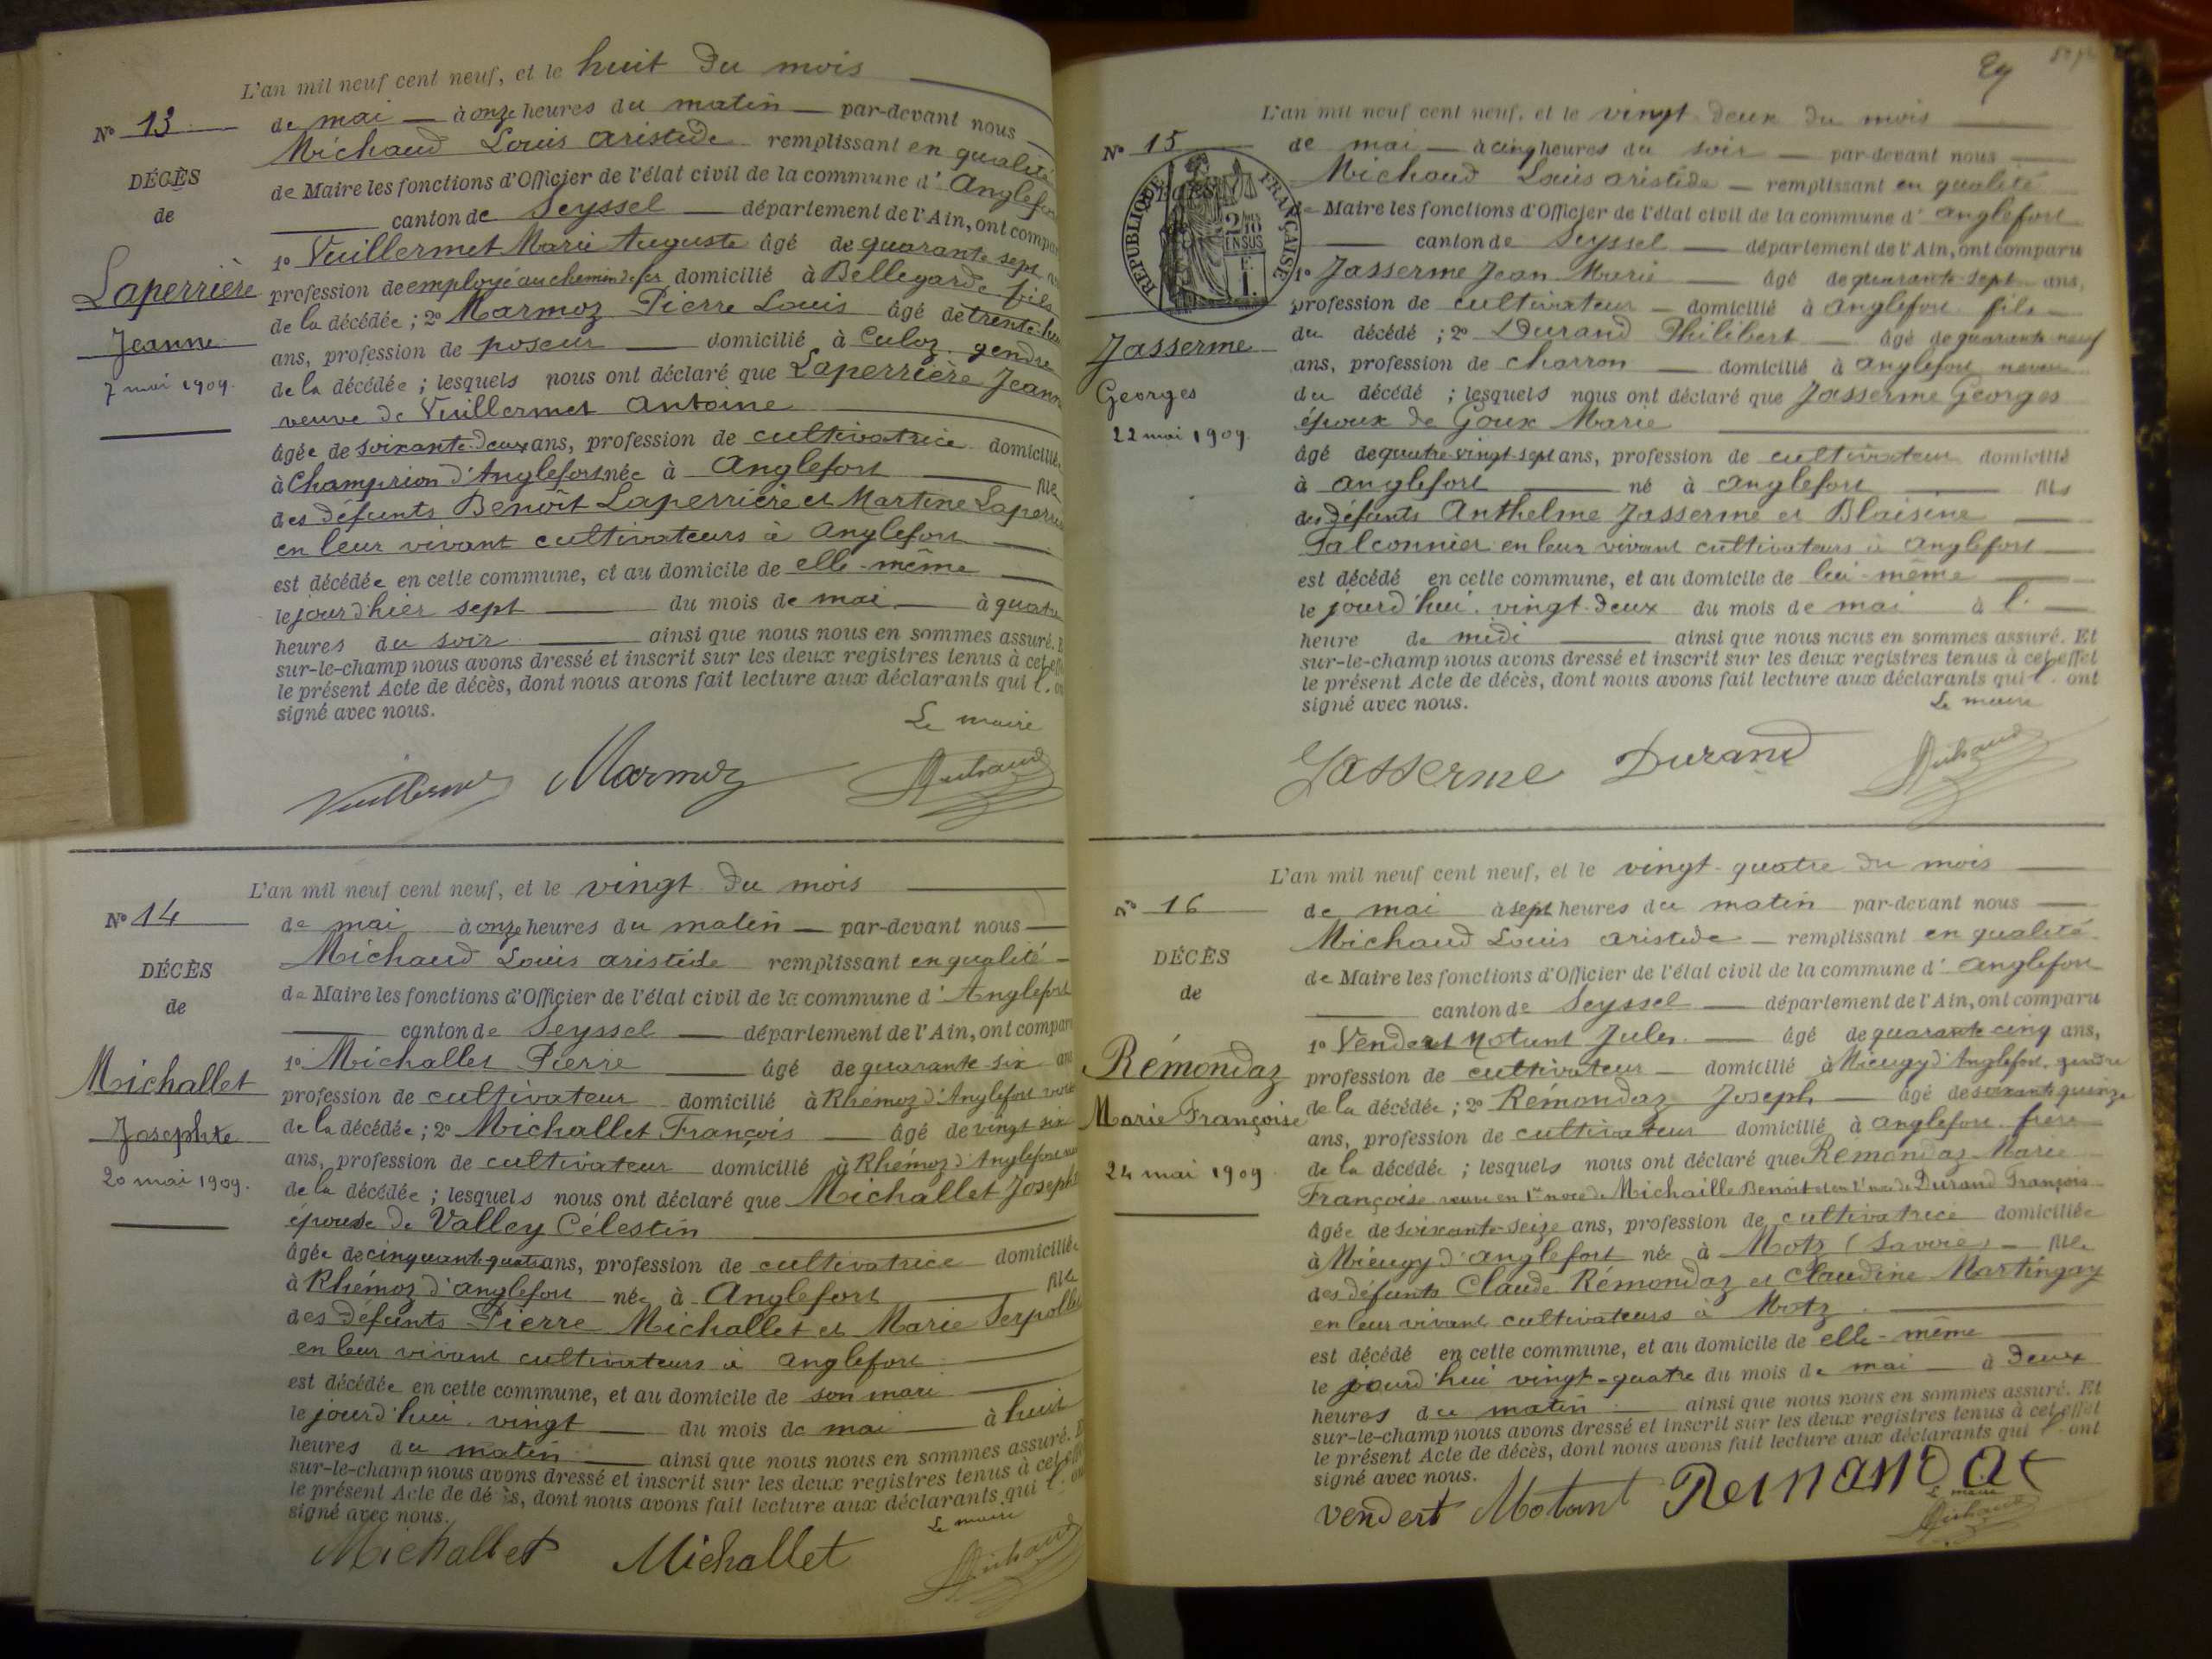 L'an mil neuf cent neuf, et le huit du mois
Nº 13
de mai à onze heures du matin par-devant nous
Michaud Louis Aristide remplissant en qualité
DÉCÈS
de Maire les fonctions d'Officier de l'état civil de la commune d'Anglefort
de
canton de Seyssel département de l'Ain, ont compar
1º Vuillermet Marie Auguste âgé de quarante sept
Laperrière
profession de employé au chemin de fer domicilié à Bellegarde fils
de la décédée ; 2º Marmoz Pierre Louis âgé de trente-hu
Jeanne
ans, profession de poseur domicilié à Culoz gendre
7 mai 1909.
de la décédée ; lesquels nous ont déclaré que Laperrière Jeanne
veuve de Vuillermet Antoine
âgée de soixante-deux ans, profession de cultivatrice domiciliée
à Champrion d'Anglefort née à Anglefort fille
des défunts Benoît Laperrière et Martine Laperri
en leur vivant cultivateurs à Anglefort
est décédée en cette commune, et au domicile de elle-même
le jour d'hier sept du mois de mai à quatre
heures du soir ainsi que nous nous en sommes assuré. E
sur-le-champ nous avons dressé et inscrit sur les deux registres tenus à cet effe
le présent Acte de décès, dont nous avons fait lecture aux déclarants qui l' on
signé avec nous.
Le maire
Vuillermet Marmoz Michaud
L'an mil neuf cent neuf, et le vingt du mois
Nº 14
de mai à onze heures du matin par-devant nous
Michaud Louis Aristide remplissant en qualité
DÉCÈS
de Maire les fonctions d'Officier de l'état civil de la commune d'Anglefort
de
canton de Seyssel département de l'Ain, ont compar
1º Michallet Pierre âgé de quarante six ans
Michallet
profession de cultivateur domicilié à Rhémoz d'Anglefort
de la décédée ; 2º Michallet François âgé de vingt six
Josephte
ans, profession de cultivateur domicilié à Rhémoz d'Anglefort
20 mai 1909.
de la décédée ; lesquels nous ont déclaré que Michallet Josephte
épouse de Valley Célestin
âgée de cinquante quatre ans, profession de cultivatrice domiciliée
à Rhémoz d'Anglefort née à Anglefort fille
des défunts Pierre Michallet et Marie Serpollet
en leur vivant cultivateurs à Anglefort
est décédée en cette commune, et au domicile de son mari
le jourd'hui vingt du mois de mai à huit
heures du matin ainsi que nous nous en sommes assuré. E
sur-le-champ nous avons dressé et inscrit sur les deux registres tenus à cet effe
le présent Acte de décès, dont nous avons fait lecture aux déclarants qui l' on
signé avec nous.
Le maire
Michallet Michallet Michaud
29
L'an mil neuf cent neuf, et le vingt-deux du mois
Nº 15
de mai à cinq heures du soir par-devant nous
Michaud Louis Aristide remplissant en qualité
RÉPUBLIQUE FRANÇAISE
de Maire les fonctions d'Officier de l'état civil de la commune d'Anglefort
canton de Seyssel département de l'Ain, ont comparu
1º Jasserme Jean Marie âgé de quarante-sept ans,
profession de cultivateur domicilié à Anglefort fils
du décédé ; 2º Durand Philibert âgé de quarante-neuf
Jasserme
ans, profession de charron domicilié à Anglefort neveu
Georges
du décédé ; lesquels nous ont déclaré que Jasserme Georges
époux de Goux Marie
22 mai 1909.
âgé de quatre-vingt-sept ans, profession de cultivateur domicilié
à Anglefort né à Anglefort fils
des défunts Anthelme Jasserme et Blaisine
Falconnier en leur vivant cultivateurs à Anglefort
est décédé en cette commune, et au domicile de lui-même
le jourd'hui vingt-deux du mois de mai à l'
heure de midi ainsi que nous nous en sommes assuré. Et
sur-le-champ nous avons dressé et inscrit sur les deux registres tenus à cet effet
le présent Acte de décès, dont nous avons fait lecture aux déclarants qui l' ont
signé avec nous.
Le maire
Jasserme Durand Michaud
L'an mil neuf cent neuf, et le vingt-quatre du mois
Nº 16
de mai à sept heures du matin par-devant nous
Michaud Louis Aristide remplissant en qualité
DÉCÈS
de Maire les fonctions d'Officier de l'état civil de la commune d'Anglefort
de
canton de Seyssel département de l'Ain, ont comparu
1º Vendert Motunt Jules âgé de quarante cinq ans,
Rémondaz
profession de cultivateur domicilié à Mieugy d'Anglefort gendre
de la décédée ; 2º Rémondaz Joseph âgé de soixante quinze
Marie Françoise
ans, profession de cultivateur domicilié à Anglefort frère
24 mai 1909.
de la décédée ; lesquels nous ont déclaré que Rémondaz Marie
Françoise veuve en 1re noce de Michaille Benoît et en de Durand François
âgée de soixante-seize ans, profession de cultivatrice domiciliée
à Mieugy d'Anglefort née à Motz (Savoie) fille
des défunts Claude Rémondaz et Claudine Martingay
en leur vivant cultivateurs à Motz
est décédé en cette commune, et au domicile de elle-même
le jourd'hui vingt-quatre du mois de mai à deux
heures du matin ainsi que nous nous en sommes assuré. Et
sur-le-champ nous avons dressé et inscrit sur les deux registres tenus à cet effet
le présent Acte de décès, dont nous avons fait lecture aux déclarants qui l' ont
signé avec nous.
Le maire
vendert Motunt Remandat Michaud